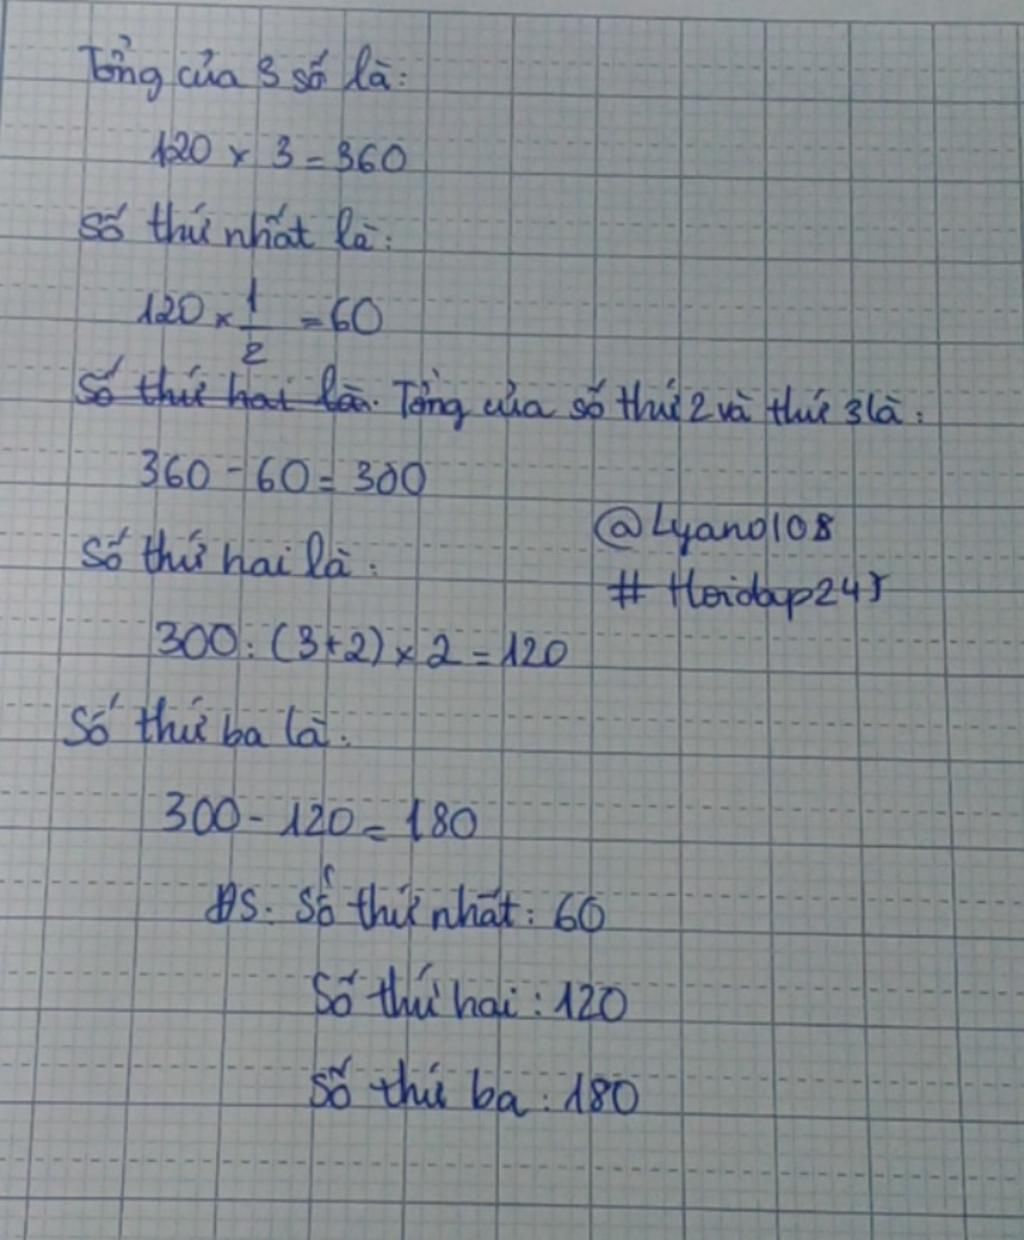 Tổng của 3 số là:
120 × 3 = 360
Số thứ nhất là:
120 × 1/2 = 60
Số thứ hai là. Tổng của số thứ 2 và thứ 3 là:
360 - 60 = 300
@Lyano108
Số thứ hai là:
# Hoidap247
300 : (3+2) × 2 = 120
Số thứ ba là:
300 - 120 = 180
ĐS: Số thứ nhất: 60
Số thứ hai: 120
Số thứ ba: 180